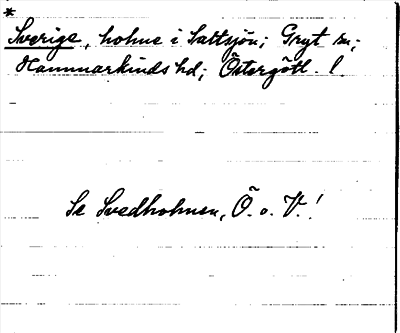 *
Sverige, holme i Saltsjön; Gryt sn;
Hammarkinds hd; Östergötl. l.
Se Svedholmen, Ö. o. V.!